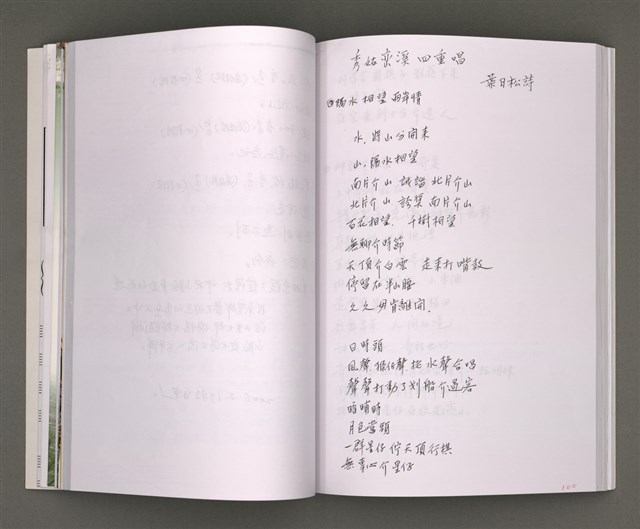 秀姑巒溪四重唱
葉日松詩
隔水相望兩岸情
水,將山分開來
山,隔水相望
南片介山 試譜 北片介山
北片介山 誇獎 南片介山
百花相望, 千樹相望
無聊介時節
天頂介白雲 走來打嘴鼓
停留在半山腰
久久毋肯離開.
日時頭
風聲 水聲合唱
聲聲打動了划船介過客
暗晡時
月色當顯
一群星仔佇天頂行棋
無專心介星仔